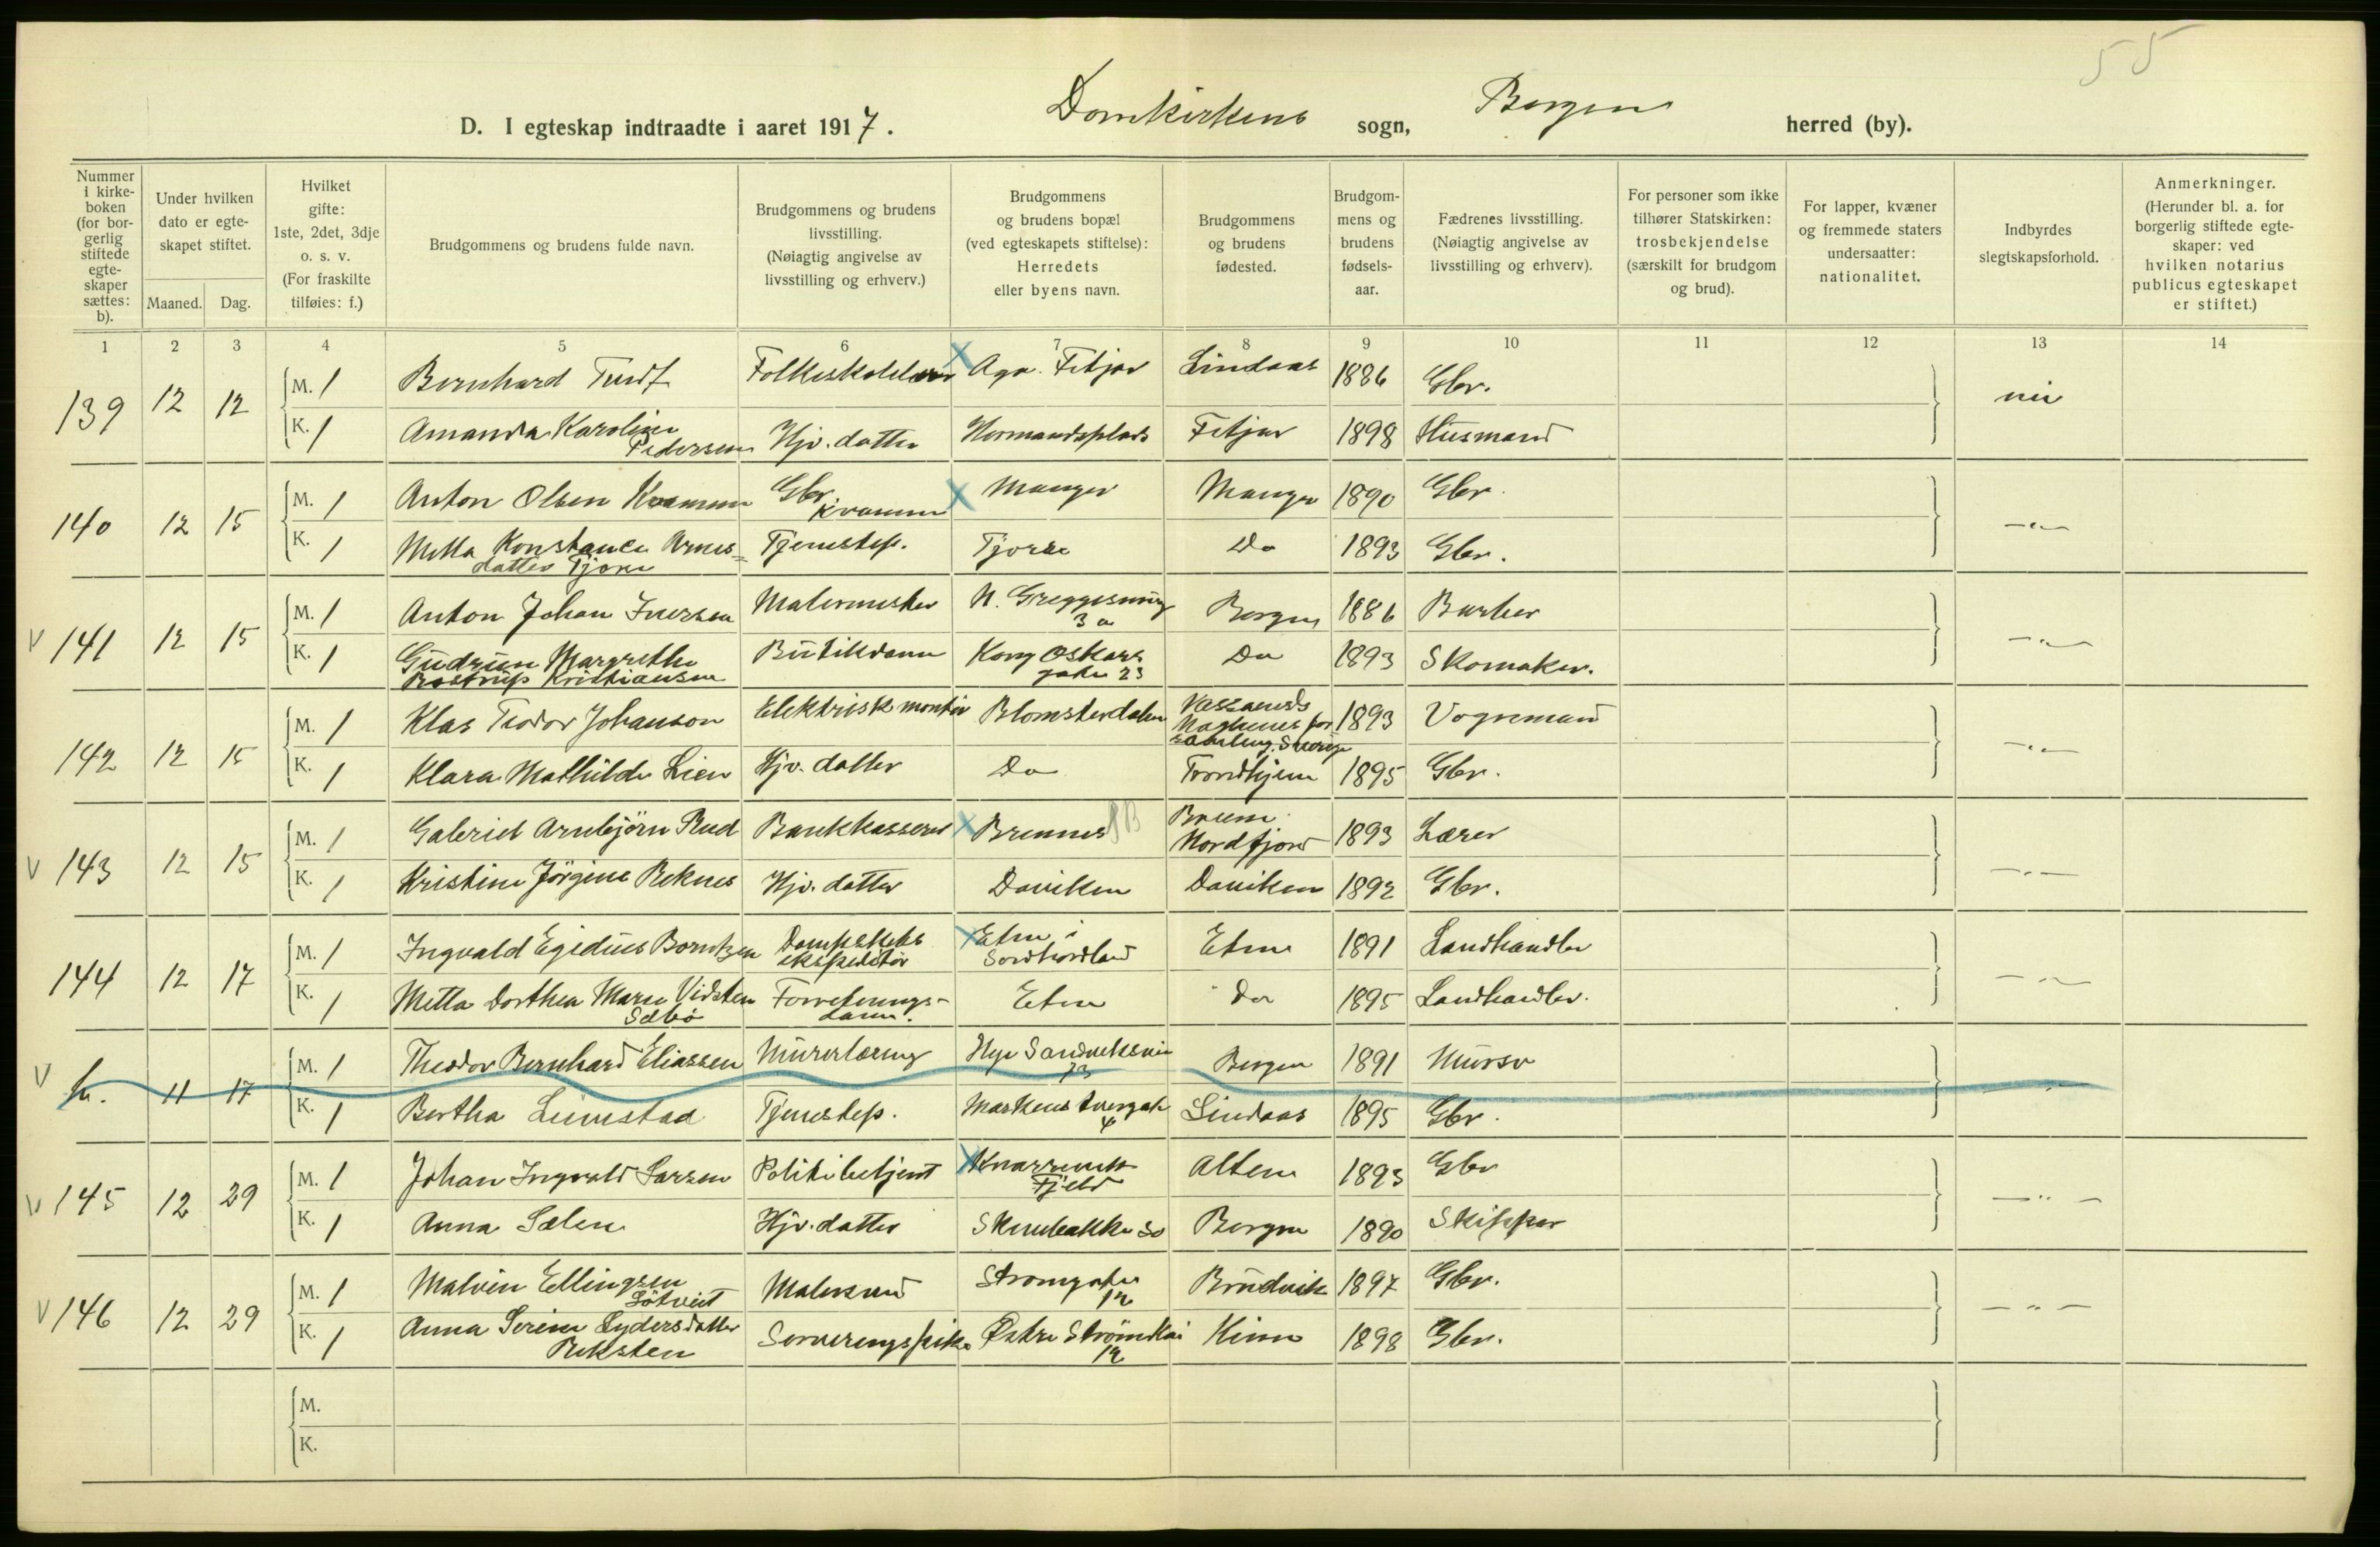 55
D. I egteskap indtraadte i aaret 1917. Domkirkens sogn, Bergen herred (by).
Nummer i kirke-boken (for bor-gerlig stiftede egte-skaper sættes: b).
Under hvilken dato er egte-skapet stiftet.
Maaned. Dag.
Hvilket gifte: 1ste, 2det, 3dje o. s. v. (For fraskilte tilføies: f.)
Brudgommens og brudens fulde navn.
Brudgommens og brudens livsstilling. (Nøiagtig angivelse av livsstilling og erhverv.)
Brudgommens og brudens bopæl (ved egteskapets stiftelse): Herredets eller byens navn.
Brudgommens og brudens fødested.
Brudgom-mens og brudens fødsels-aar.
Fædrenes livsstilling. (Nøiagtig angivelse av livsstilling og erhverv).
For personer som ikke tilhører Statskirken: trosbekjendelse (særskilt for brudgom og brud).
For lapper, kvæner og fremmede staters undersaatter: nationalitet.
Indbyrdes slegtskapsforhold.
Anmerkninger. (Herunder bl. a. for borgerlig stiftede egte-skaper: ved hvilken notarius publicus egteskapet er stiftet.)
1 2 3 4 5 6 7 8 9 10 11 12 13 14
139 12 12 M. 1 Bernhard X Fitjar Lindaas 1886 Gbr.
K. 1 Amanda Karoline Pedersen Hjv. datter Fitjar 1898 Husmand
140 12 15 M. 1 Anton Olsen Kvamme Gbr. Kvamme X Manger Manger 1890 Gbr.
K. 1 Konstance Arnes= datter Tjore Tjenestep. Do 1893 Gbr. -"-
V 141 12 15 M. 1 Anton Johan Iversen Malermester 3 a Bergen 1886
K. 1 Gudrun Margrethe Kristiansen Butikdame Kong Oskars gate 23 Do 1893 Skomaker. -"-
142 12 15 M. 1 Klas Teodor Johanson Elektrisk montør Blomsterdalen 1893 Vognmand
K. 1 Klara Mathilde Lien Hjv. datter Do Trondhjem 1895 Gbr. -"-
V 143 12 15 M. 1 Gabriel Arnbjörn Rud Bankkasserer X Nordfjord 1893 Lærer
K. 1 Kristine Jörgine Reknes Hjv. datter Daviken Daviken 1892 Gbr. -"-
144 12 17 M. 1 Ingvald Egidius Dampskibs ekspeditör X Etne i Söndhordland Etne 1891 Landhandler
K. 1 Metta Dorthea Marie Vidsten Sæbö Forretnings-dame. Etne Do 1895 Landhandler. -"-
V 11 17 M. 1 Theodor Bernhard Eliassen Murerlærling Nye Sandviksvei 73 Bergen 1891 Murer
K. 1 Bertha Tjenestep. Lindaas 1895 Gbr.
V 145 12 29 M. 1 Johan Ingvald Larsen Politibetjent X Fjeld Alten 1893 Gbr
K. 1 Anna Sælen Hjv. datter Bergen 1890 Skipper -"-
V 146 12 29 M. 1 Malvin Ellingsen Malersvend Strömgaten 12 Bruvik 1897 Gbr.
K. 1 Anna Serine Lydersdatter Reksten Serveringspike Østre Strömkai 12 Kinn 1898 Gbr. -"-
M.
K.